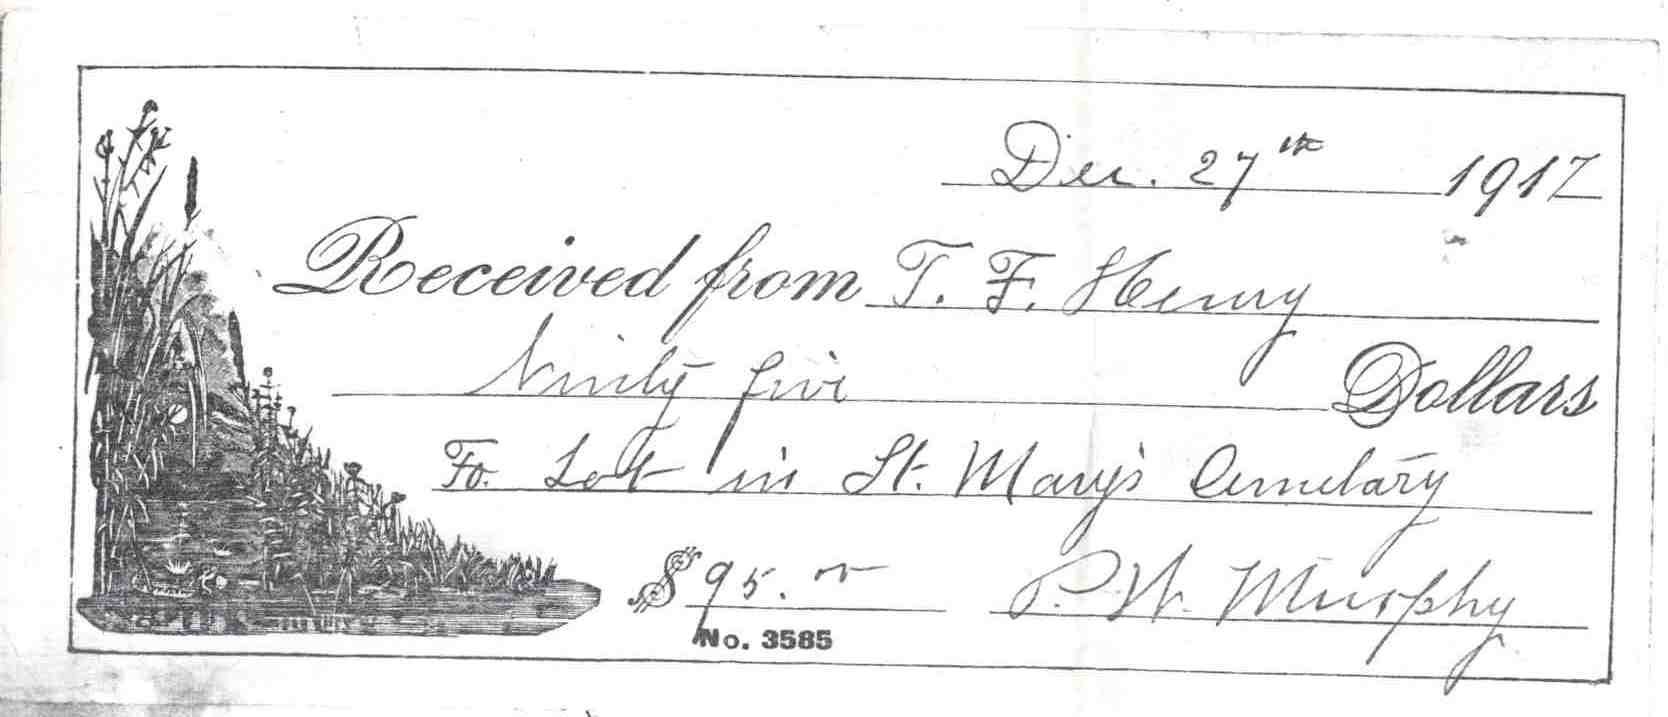 Dec. 27th 1917
Received from T. F. Henry
Ninity five Dollars
Fo. Lot in St. Mary's Cemetary
$95.00 P. W. Murphy
No. 3585